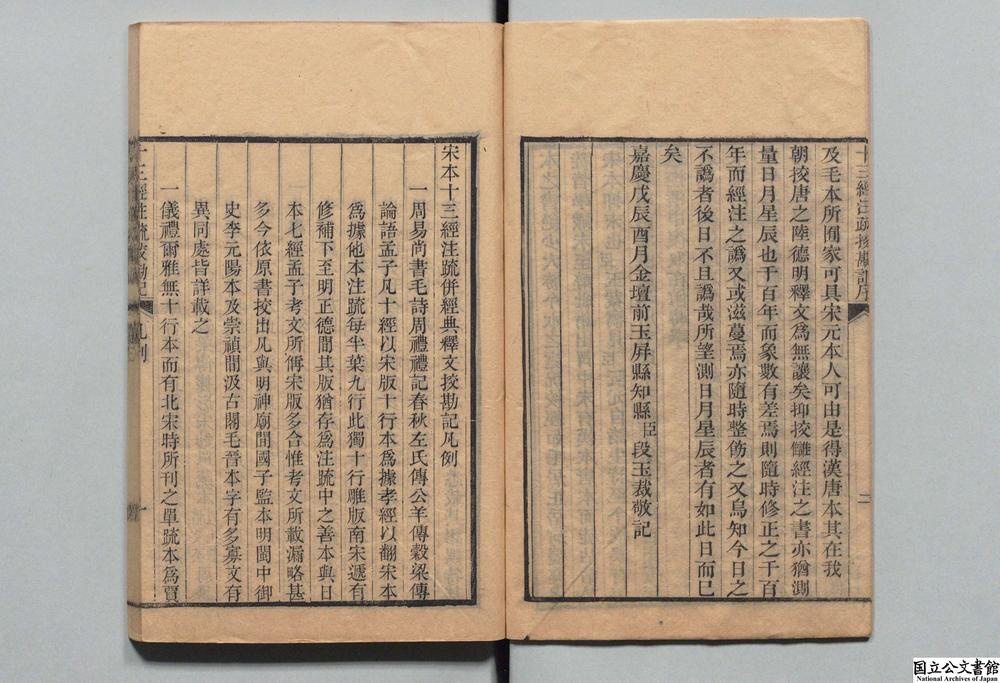 十三經注疏挍勘記序
二
及毛本所同家可具宋元本人可由是得漢唐本其在我
朝挍唐之陸德明釋文為無讓矣抑挍讎經注之書亦猶測
量日月星辰也千百年而象數有差焉則隨時修正之千百
年而經注之譌又或滋蔓焉亦隨時整飭之又烏知今日之
不譌者後日不且譌哉所望測日月星辰者有如此日而已
矣
嘉慶戊辰酉月金壇前玉屏縣知縣臣段玉裁敬記
宋本十三經注疏併經典釋文挍勘記凡例
一周易尚書毛詩周禮禮記春秋左氏傳公羊傳穀梁傳
論語孟子凡十經以宋版十行本為據孝經以翻宋本
為據他本注疏每半葉九行此獨十行雕版南宋遞有
修補下至明正德間其版猶存為注疏中之善本與日
本七經孟子考文所偁宋版多合惟考文所載漏略甚
多今依原書挍出凡與明神廟間國子監本明閩中御
史李元陽本及崇禎間汲古閣毛晉本字有多寡文有
異同處皆詳載之
一儀禮爾雅無十行本而有北宋時所刊之單疏本為賈
十三經注疏挍勘記
凡例
一
国立公文書館
National Archives of Japan